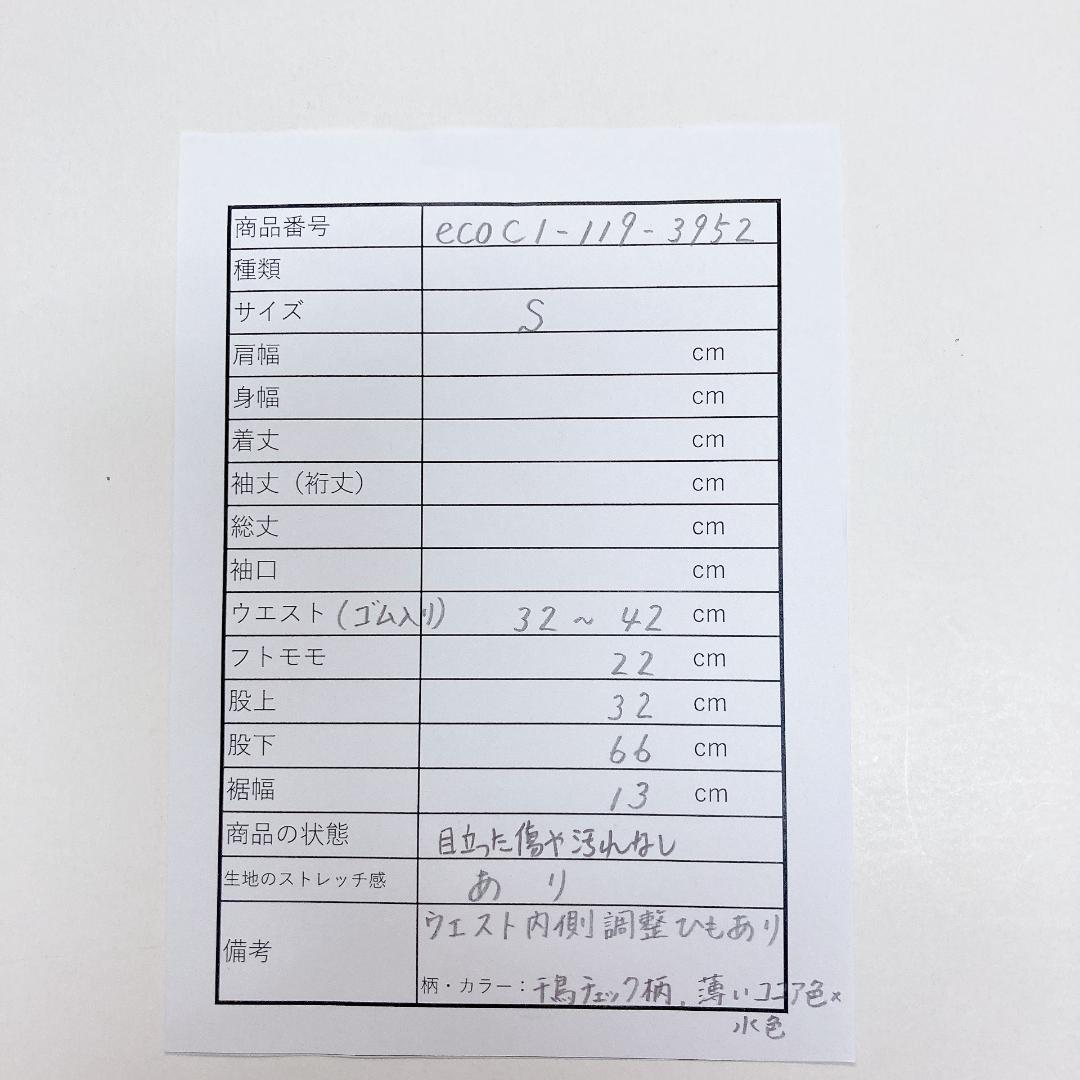 商品番号 ecoC1-119-3952
種類
サイズ S
肩幅 cm
身幅 cm
着丈 cm
袖丈（裄丈） cm
総丈 cm
袖口 cm
ウエスト(ゴム入り) 32～42 cm
フトモモ 22 cm
股上 32 cm
股下 66 cm
裾幅 13 cm
商品の状態 目立った傷や汚れなし
生地のストレッチ感 あり
備考 ウエスト内側調整ひもあり
柄・カラー：千鳥チェック柄、薄いココア色×
水色